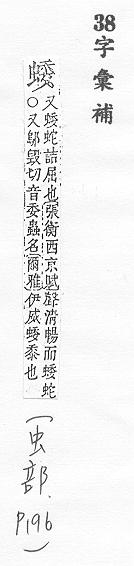 38字彙補
蜲
又蜲蛇詰屈也張衡西京賦聲清暢而蜲蛇
○又鄔毀切音委蟲名爾雅伊威蜲黍也
(虫部. P.196)